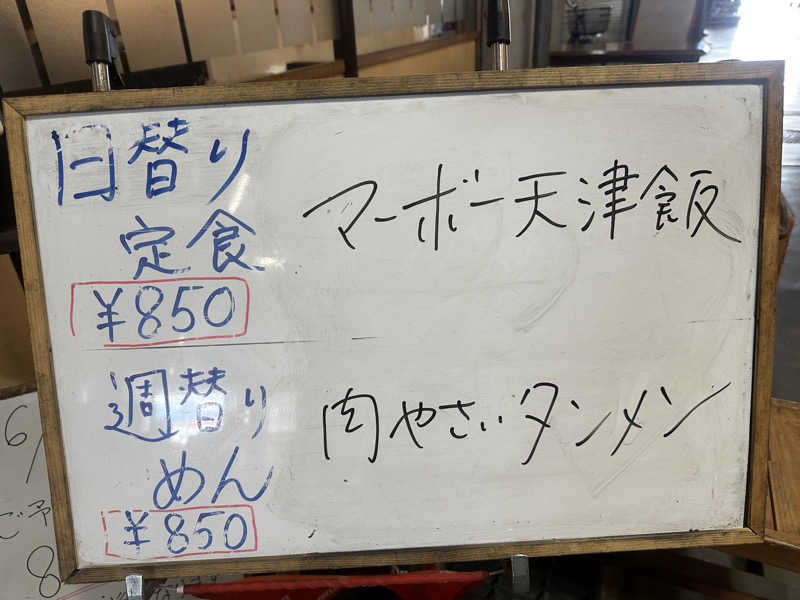 日替り
定食
¥850
マーボー天津飯
週替り
めん
¥850
肉やさいタンメン
6/
ご予
8